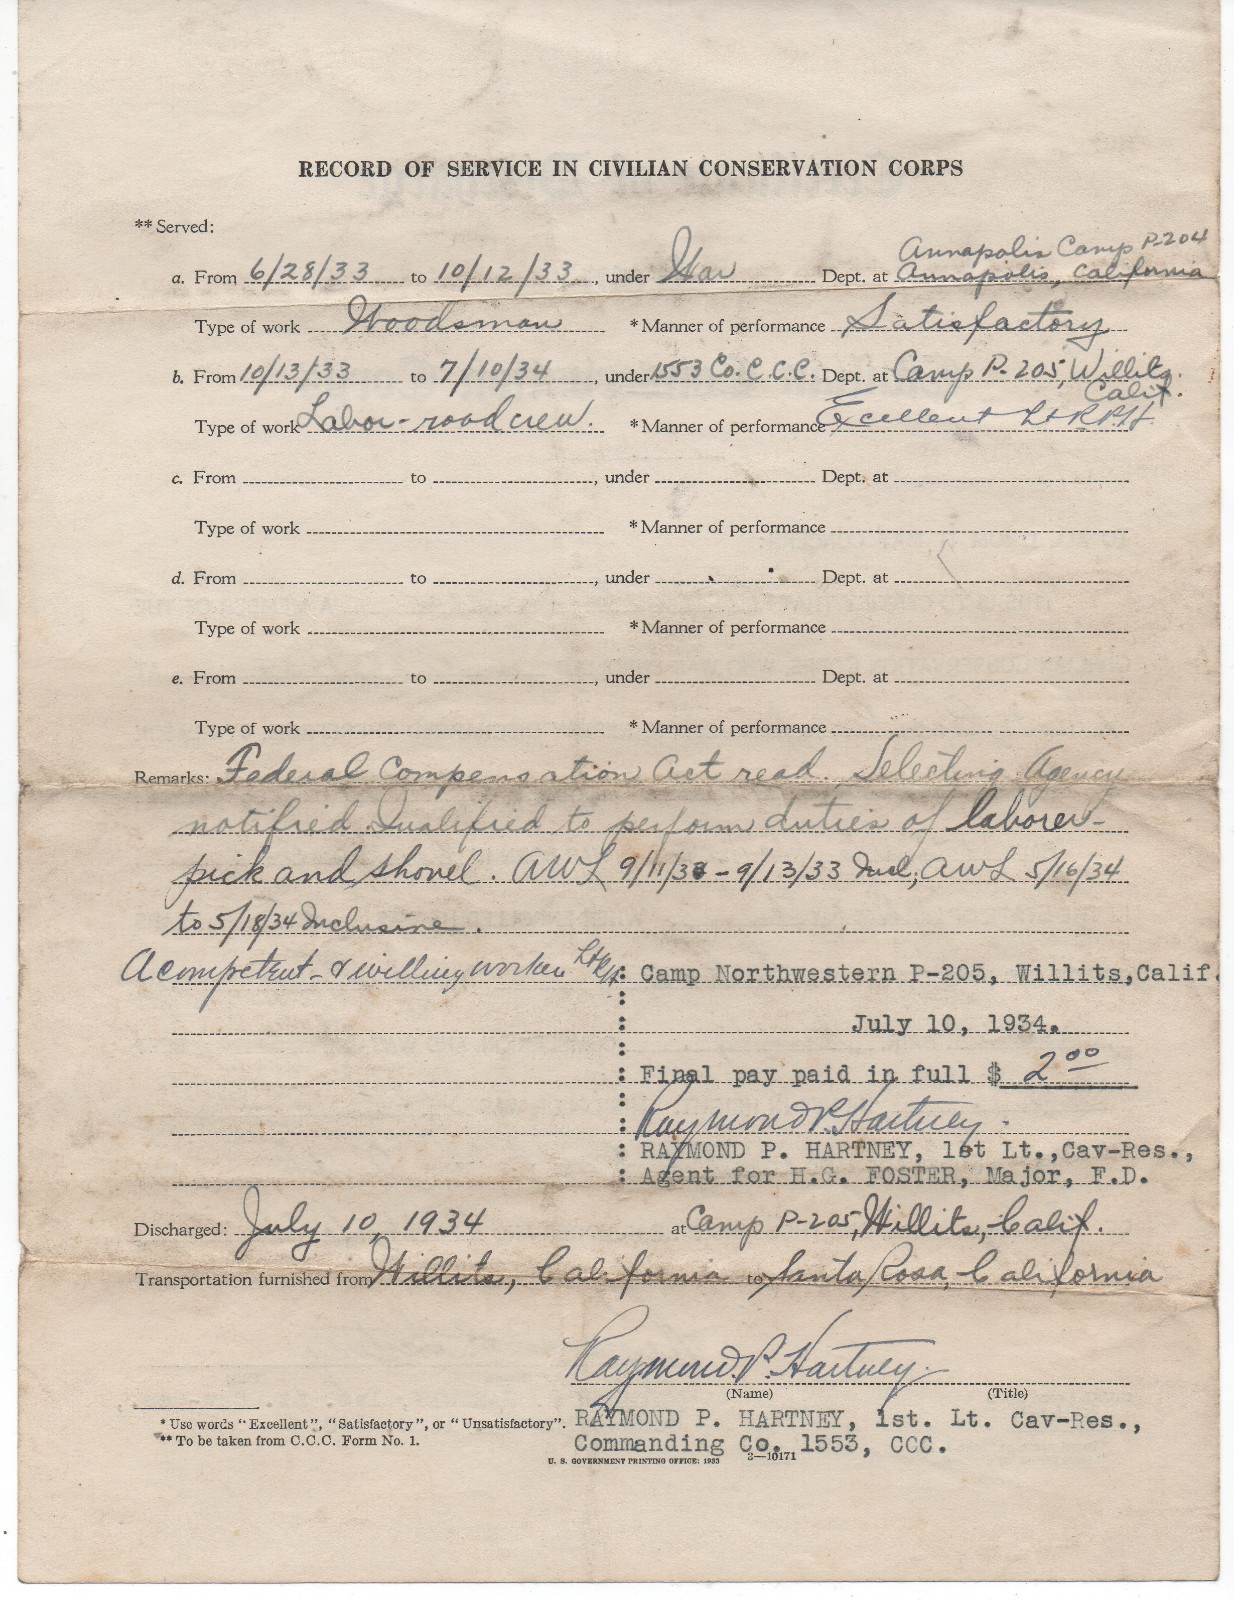 RECORD OF SERVICE IN CIVILIAN CONSERVATION CORPS
** Served:
Annapolis Camp P-204
a. From 6/28/33 to 10/12/33, under War Dept. at Annapolis, California
Type of work Woodsman * Manner of performance Satisfactory
b. From 10/13/33 to 7/10/34, under 1553 Co. C.C.C. Dept. at Camp P-205, Willits,
Calif.
Type of work Labor-road crew. * Manner of performance Excellent Lt RPH
c. From to , under Dept. at
Type of work * Manner of performance
d. From to , under Dept. at
Type of work * Manner of performance
e. From to , under Dept. at
Type of work * Manner of performance
Remarks: Federal Compensation Act read. Selecting Agency
notified. Qualified to perform duties of laborer-
pick and shovel. AWL 9/11/33 - 9/13/33 Incl; AWL 5/16/34
to 5/18/34 Inclusive.
A competent & willing worker Lt RPH : Camp Northwestern P-205, Willits,Calif.
:
: July 10, 1934.
:
: Final pay paid in full $ 2 00
:
: Raymond P. Hartney.
: RAYMOND P. HARTNEY, 1st Lt.,Cav-Res.,
: Agent for H.G. FOSTER, Major, F.D.
Discharged: July 10, 1934 at Camp P-205, Willits, Calif.
Transportation furnished from Willits, California to Santa Rosa, California
Raymond P. Hartney.
(Name) (Title)
* Use words "Excellent", "Satisfactory", or "Unsatisfactory". RAYMOND P. HARTNEY, 1st. Lt. Cav-Res.,
** To be taken from C.C.C. Form No. 1. Commanding Co. 1553, CCC.
U. S. GOVERNMENT PRINTING OFFICE: 1933 3—10171